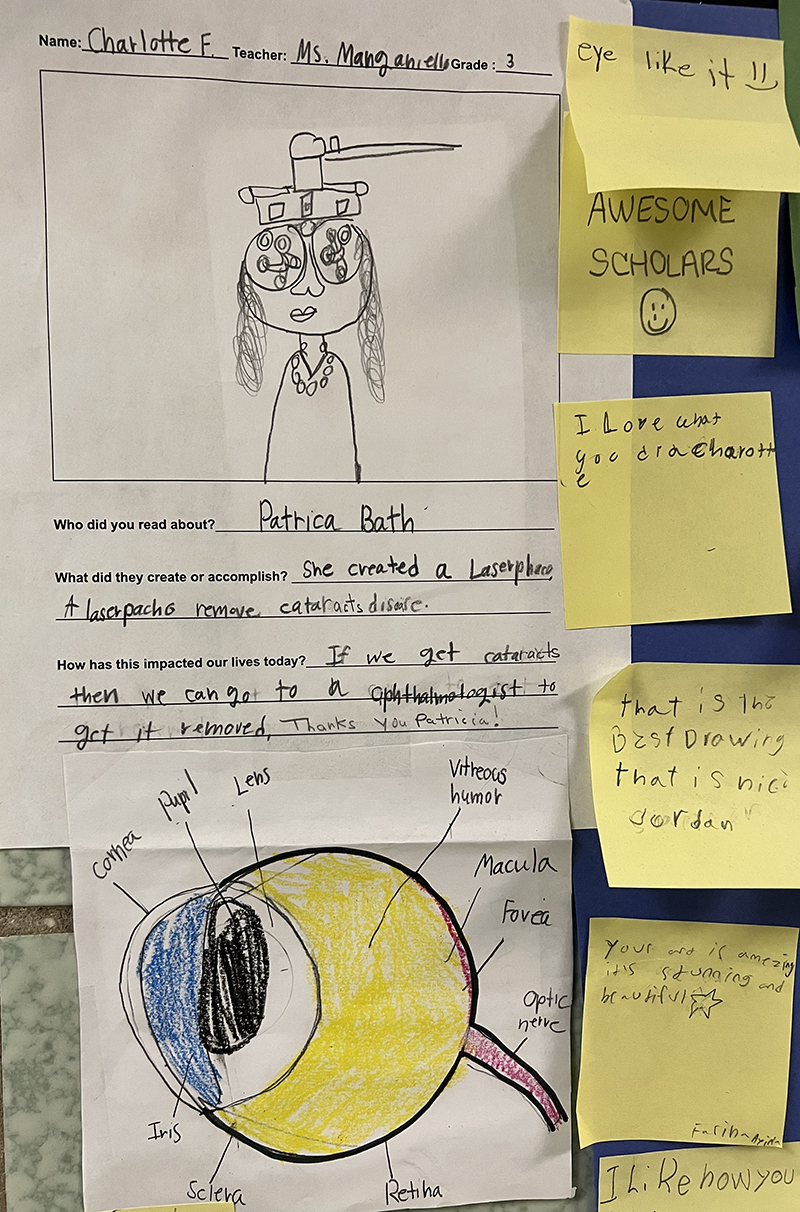 Name: Charlotte F. Teacher: Ms. Manganiello Grade : 3
Who did you read about? Patrica Bath
What did they create or accomplish? She created a Laserphace
A laserpacho remove cataracts disease.
How has this impacted our lives today? If we get cataracts
then we can go to a Ophthalmologist to
get it removed, Thanks You Patricia!
Cornea
Pupil
Lens
Vitreous
humor
Macula
Fovea
Optic
nerve
Iris
Sclera
Retina
eye like it
AWESOME
SCHOLARS
I Love what
you did Charott
e
that is the
Best Drawing
that is nice
Jordan
Your art is amezing
it's stunning and
beautiful
Fariha
I Like how you